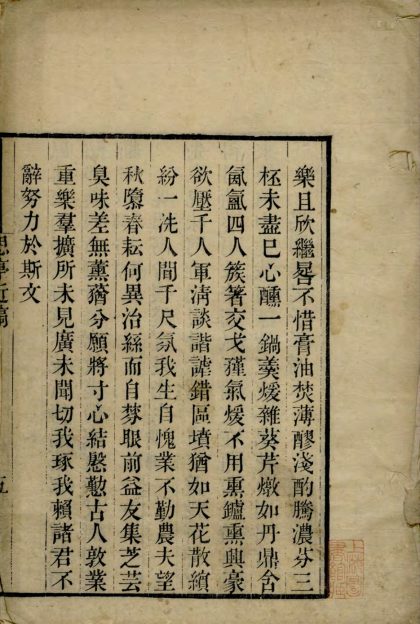 樂且欣繼晷不惜膏油焚薄醪淺酌騰濃芬三
杯未盡已心醺一鍋羹煖雜葵芹燉如丹鼎含
氤氳四人簇箸交戈氣煖不用熏鑪熏興豪
欲壓千人軍清談諧謔錯區墳猶如天花散繽
紛一洗人間千尺氛我生自愧業不勤農夫望
秋隳春耘何異治絲而自棼眼前益友集芝芸
臭味差無薰蕕分願將寸心結慇懃古人敦業
重樂羣擴所未見廣未聞切我琢我賴諸君不
辭努力於斯文
思亭近稿
五